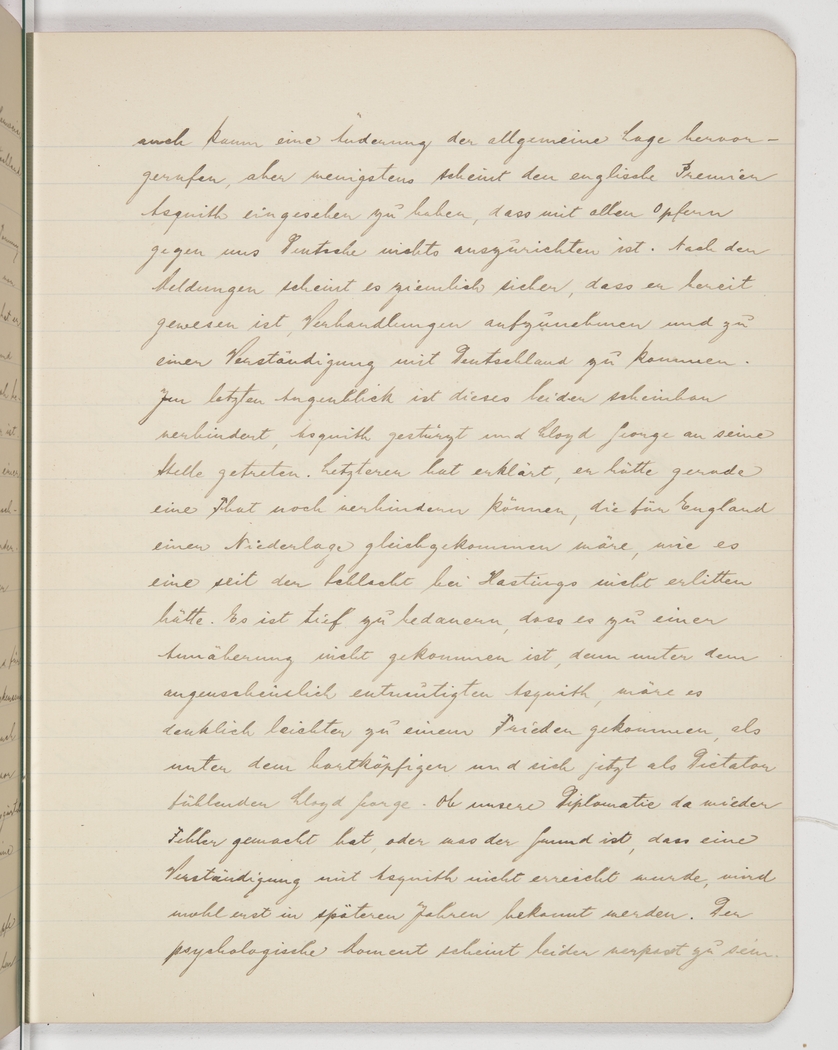 auch kaum eine Änderung der allgemeine Lage hervor-
gerufen, aber wenigstens scheint der englische Premier
Asquith eingesehen zu haben, dass mit allen Opfern
gegen uns Deutsche nichts auszurichten ist. Nach den
Meldungen scheint es ziemlich sicher, dass er bereit
gewesen ist, Verhandlungen aufzunehmen und zu
einer Verständigung mit Deutschland zu kommen.
Im letzten Augenblick ist dieses leider scheinbar
verhindert, Asquith gestürzt und Lloyd George an seine
Stelle getreten. Letzterer hat erklärt, er hätte gerade
eine That noch verhindern können, die für England
einer Niederlage gleichgekommen wäre, wie es
eine seit der Schlacht bei Hastings nicht erlitten
hätte. Es ist tief zu bedauern, dass es zu einer
Annäherung nicht gekommen ist, denn unter dem
augenscheinlich entmutigten Asquith, wäre es
denklich leichter zu einem Frieden gekommen, als
unter dem hartköpfigen und sich jetzt als Dictator
fühlenden Lloyd George. Ob unsere Diplomatie da wieder
Fehler gemacht hat, oder was der Grund ist, dass eine
Verständigung mit Asquith nicht erreicht wurde, wird
wohl erst in späteren Jahren bekannt werden. Der
psychologische Moment scheint leider verpasst zu sein.